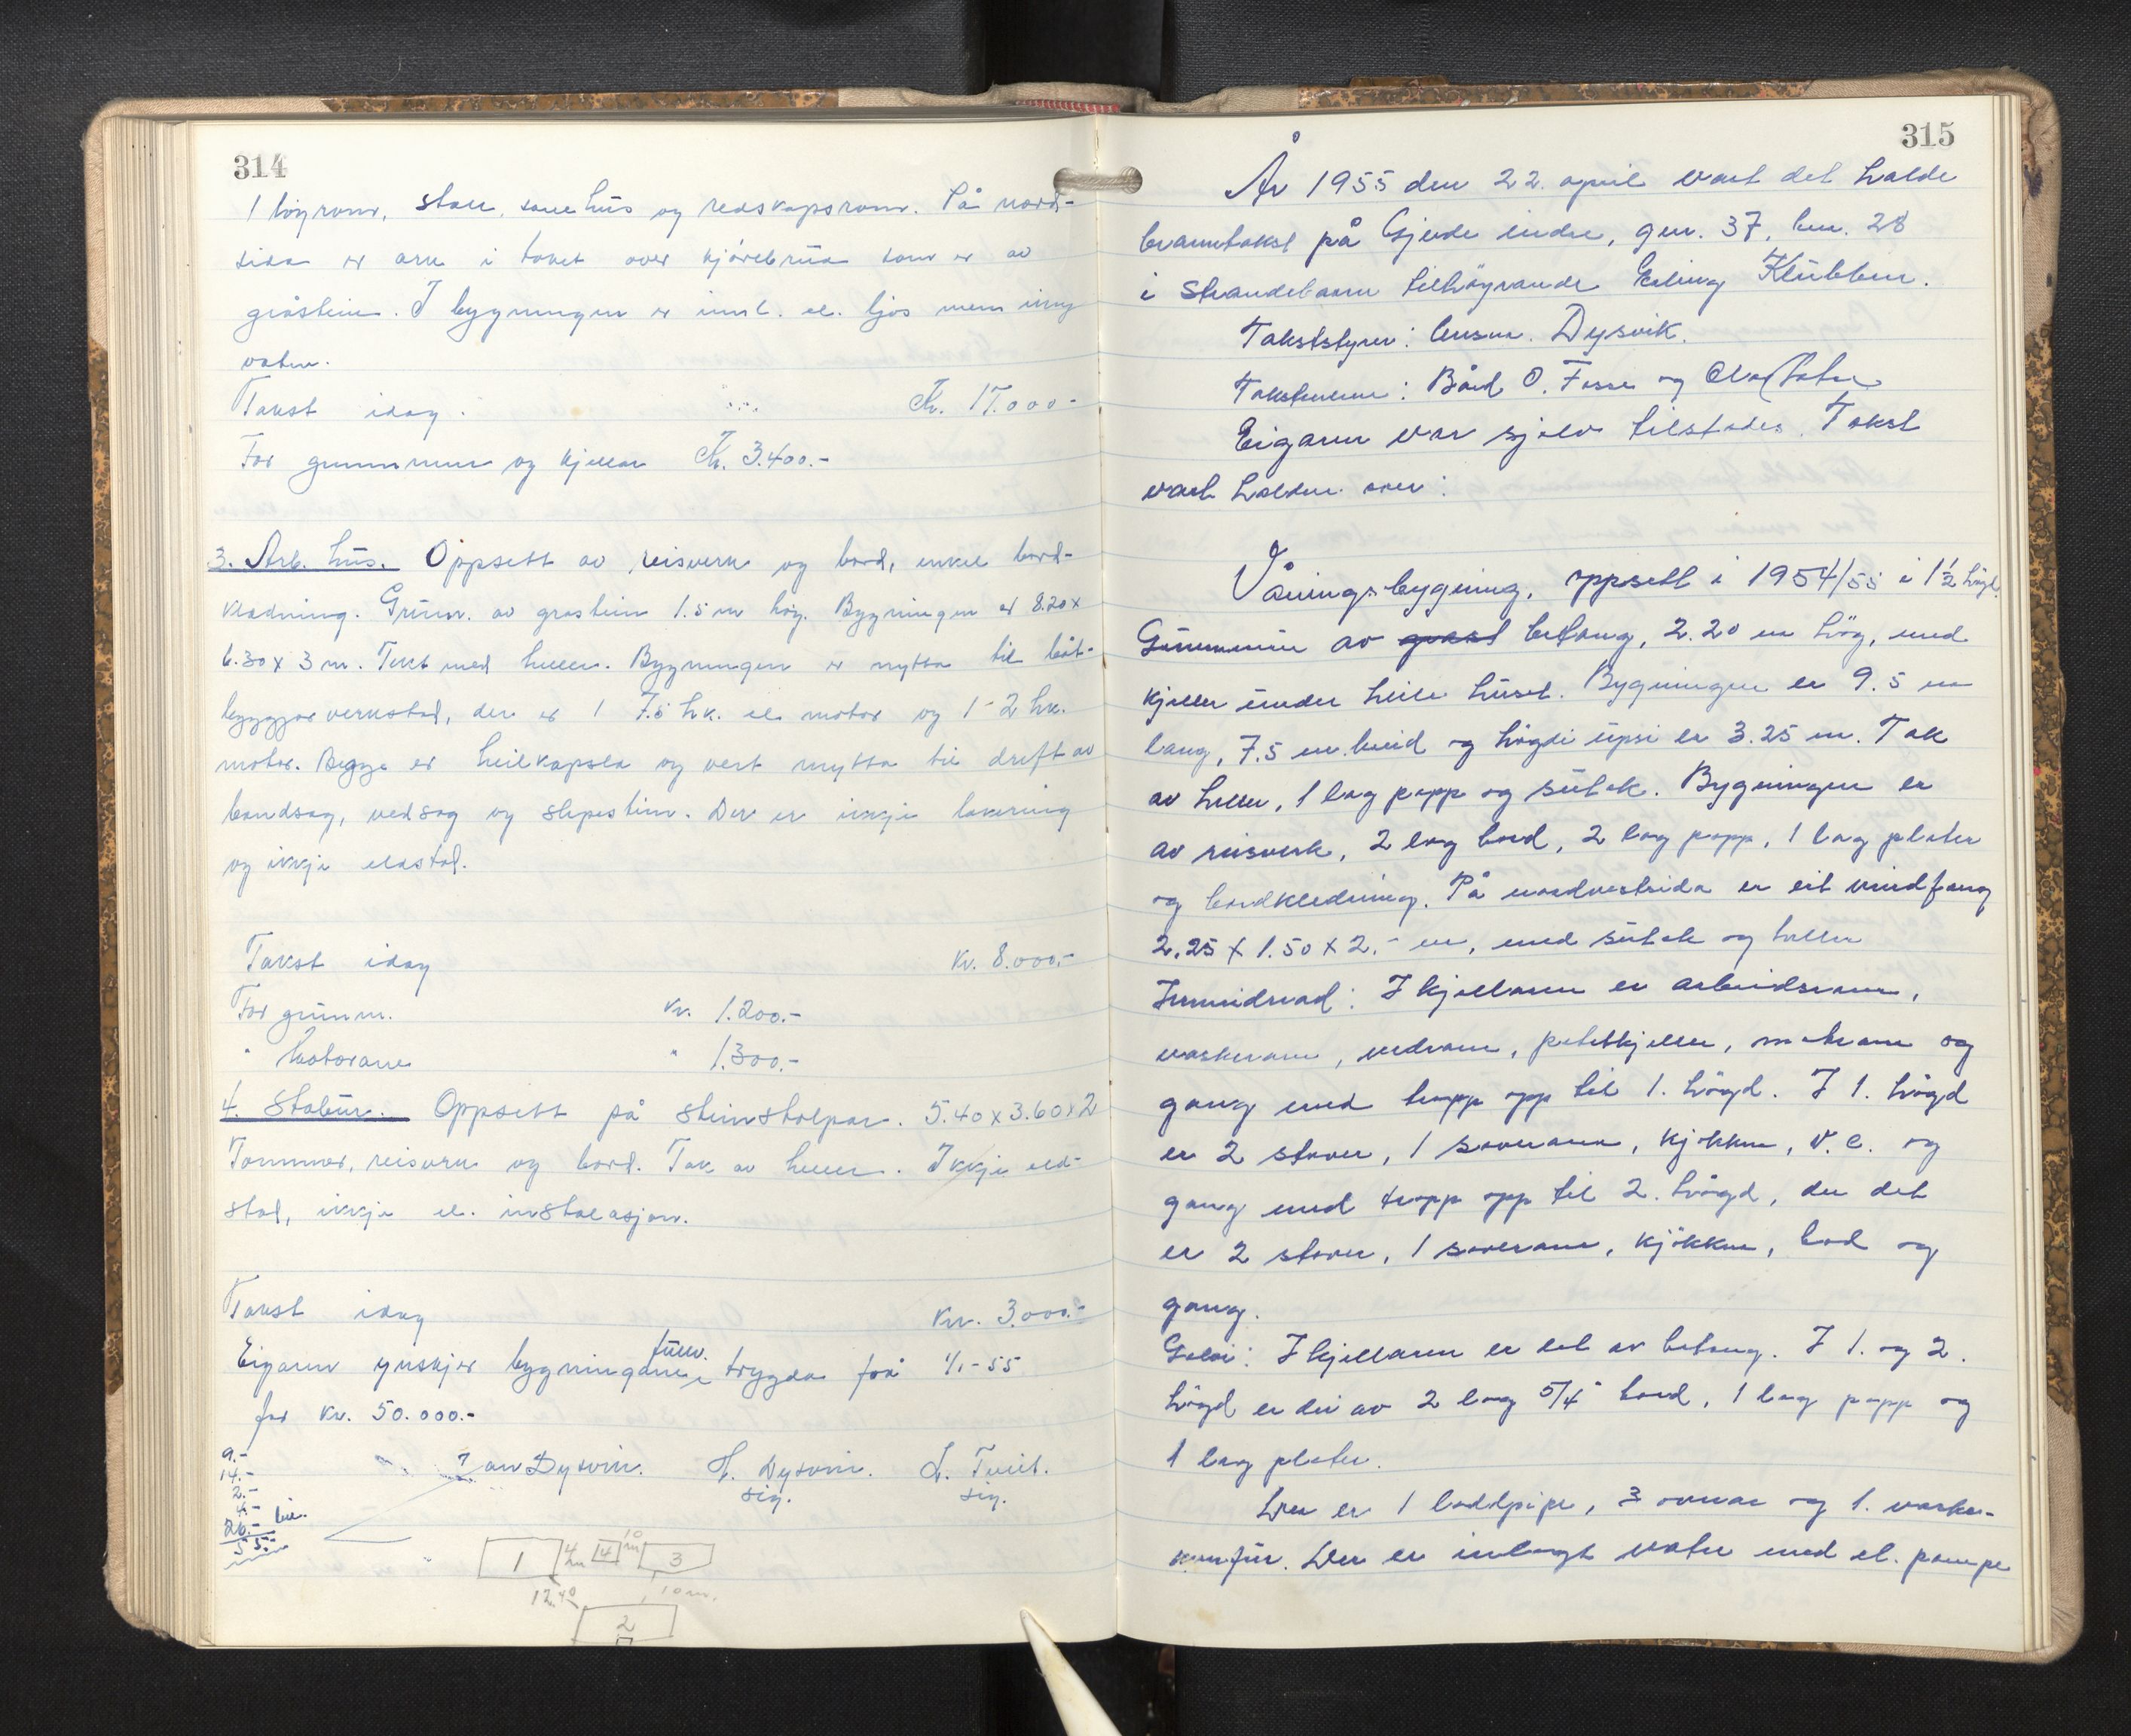 314
1 høyrom, stall, sauehus og redskapsrom. På nord-
sida er ark i taket over kjørebrua som er av
gråstein. I bygningen er innl. el. ljos men ikkje
vatn.
Takst idag. Kr. 17.000-
For grunnmur og kjellar Kr. 3.400.-
3. Arb. hus. Oppsett av reisverk og bord, enkel bord-
kledning. Grunn. av gråstein 1.5 m høg. Bygningen er 8.20 x
6.30 x 3 m. Tekt med heller. Bygningen er nytta til båt-
byggjarverkstad, der er 1 7.5 hk. el. motor og 1 - 2 hk.
motor. Begge er heilkapsla og vert nytta til drift av
bandsag, vedsag og slipestein. Der er ikkje lakering
og ikkje eldstad.
Takst idag Kr. 8.000.-
For grunnm. kr. 1.200.-
" Motorane " 1.300.-
4. Stabur. Oppsett på steinstolpar. 5.40 x 3.60 x 2
Tømmer, reisverk og bord. Tak av heller. Ikkje eld-
stad, ikkje el. instalasjon.
Takst idag Kr. 3.000.-
Eigaren ynskjer bygningane trygda frå 1/1-55
for kr. 50.000.-
9.-
14.-
2.-
4.-
26.-
55.-
Jan Dysvik. H. Dysvik. L. Tveit.
sig. sig.
1 4 m 4 10 m 3
12.40 10 m.
2
315
År 1955 den 22. april vart det halde
branntakst på Gjerde indre, gnr. 37, bnr. 28
i Strandebarm tilhøyrande Erling Klubben.
Takststyrer: lensm. Dysvik.
Takstmenn: Bård O. Fosse og
Eigaren var sjølv tilstades. Takst
vart halden over:
Våningsbygning, oppsett i 1954/55 i 1 1/2 högd.
Grunnmur av betong, 2.20 m hög, med
kjeller under heile huset. Bygningen er 9.5 m
lang, 7.5 m breid og högdi upsi er 3.25 m. Tak
av heller, 1 lag papp og sutak. Bygningen er
av reisverk, 2 lag bord, 2 lag papp, 1 lag plater
og bordkledning. På nordvestsida er eit vindfang
2.25 x 1.50 x 2.- m, med sutak og heller
Innreidnad: I kjellaren er arbeidsrom,
vaskerom, vedrom, potetkjeller, matrom og
gang med trapp opp til 1. högd. I 1. högd
er 2 stover, 1 soverom, kjökken, V.C. og
gang med trapp opp til 2. högd, der det
er 2 stover, 1 soverom, kjökken, bod og
gang.
Golvi: I kjellaren er det av betong. I 1. og 2.
högd er dei av 2 lag 5/4" bord, 1 lag papp og
1 lag plater.
Der er 1 loddpipe, 3 ovnar og 1 vaske-
komfur. Der er inlagt vatn med el. pumpe